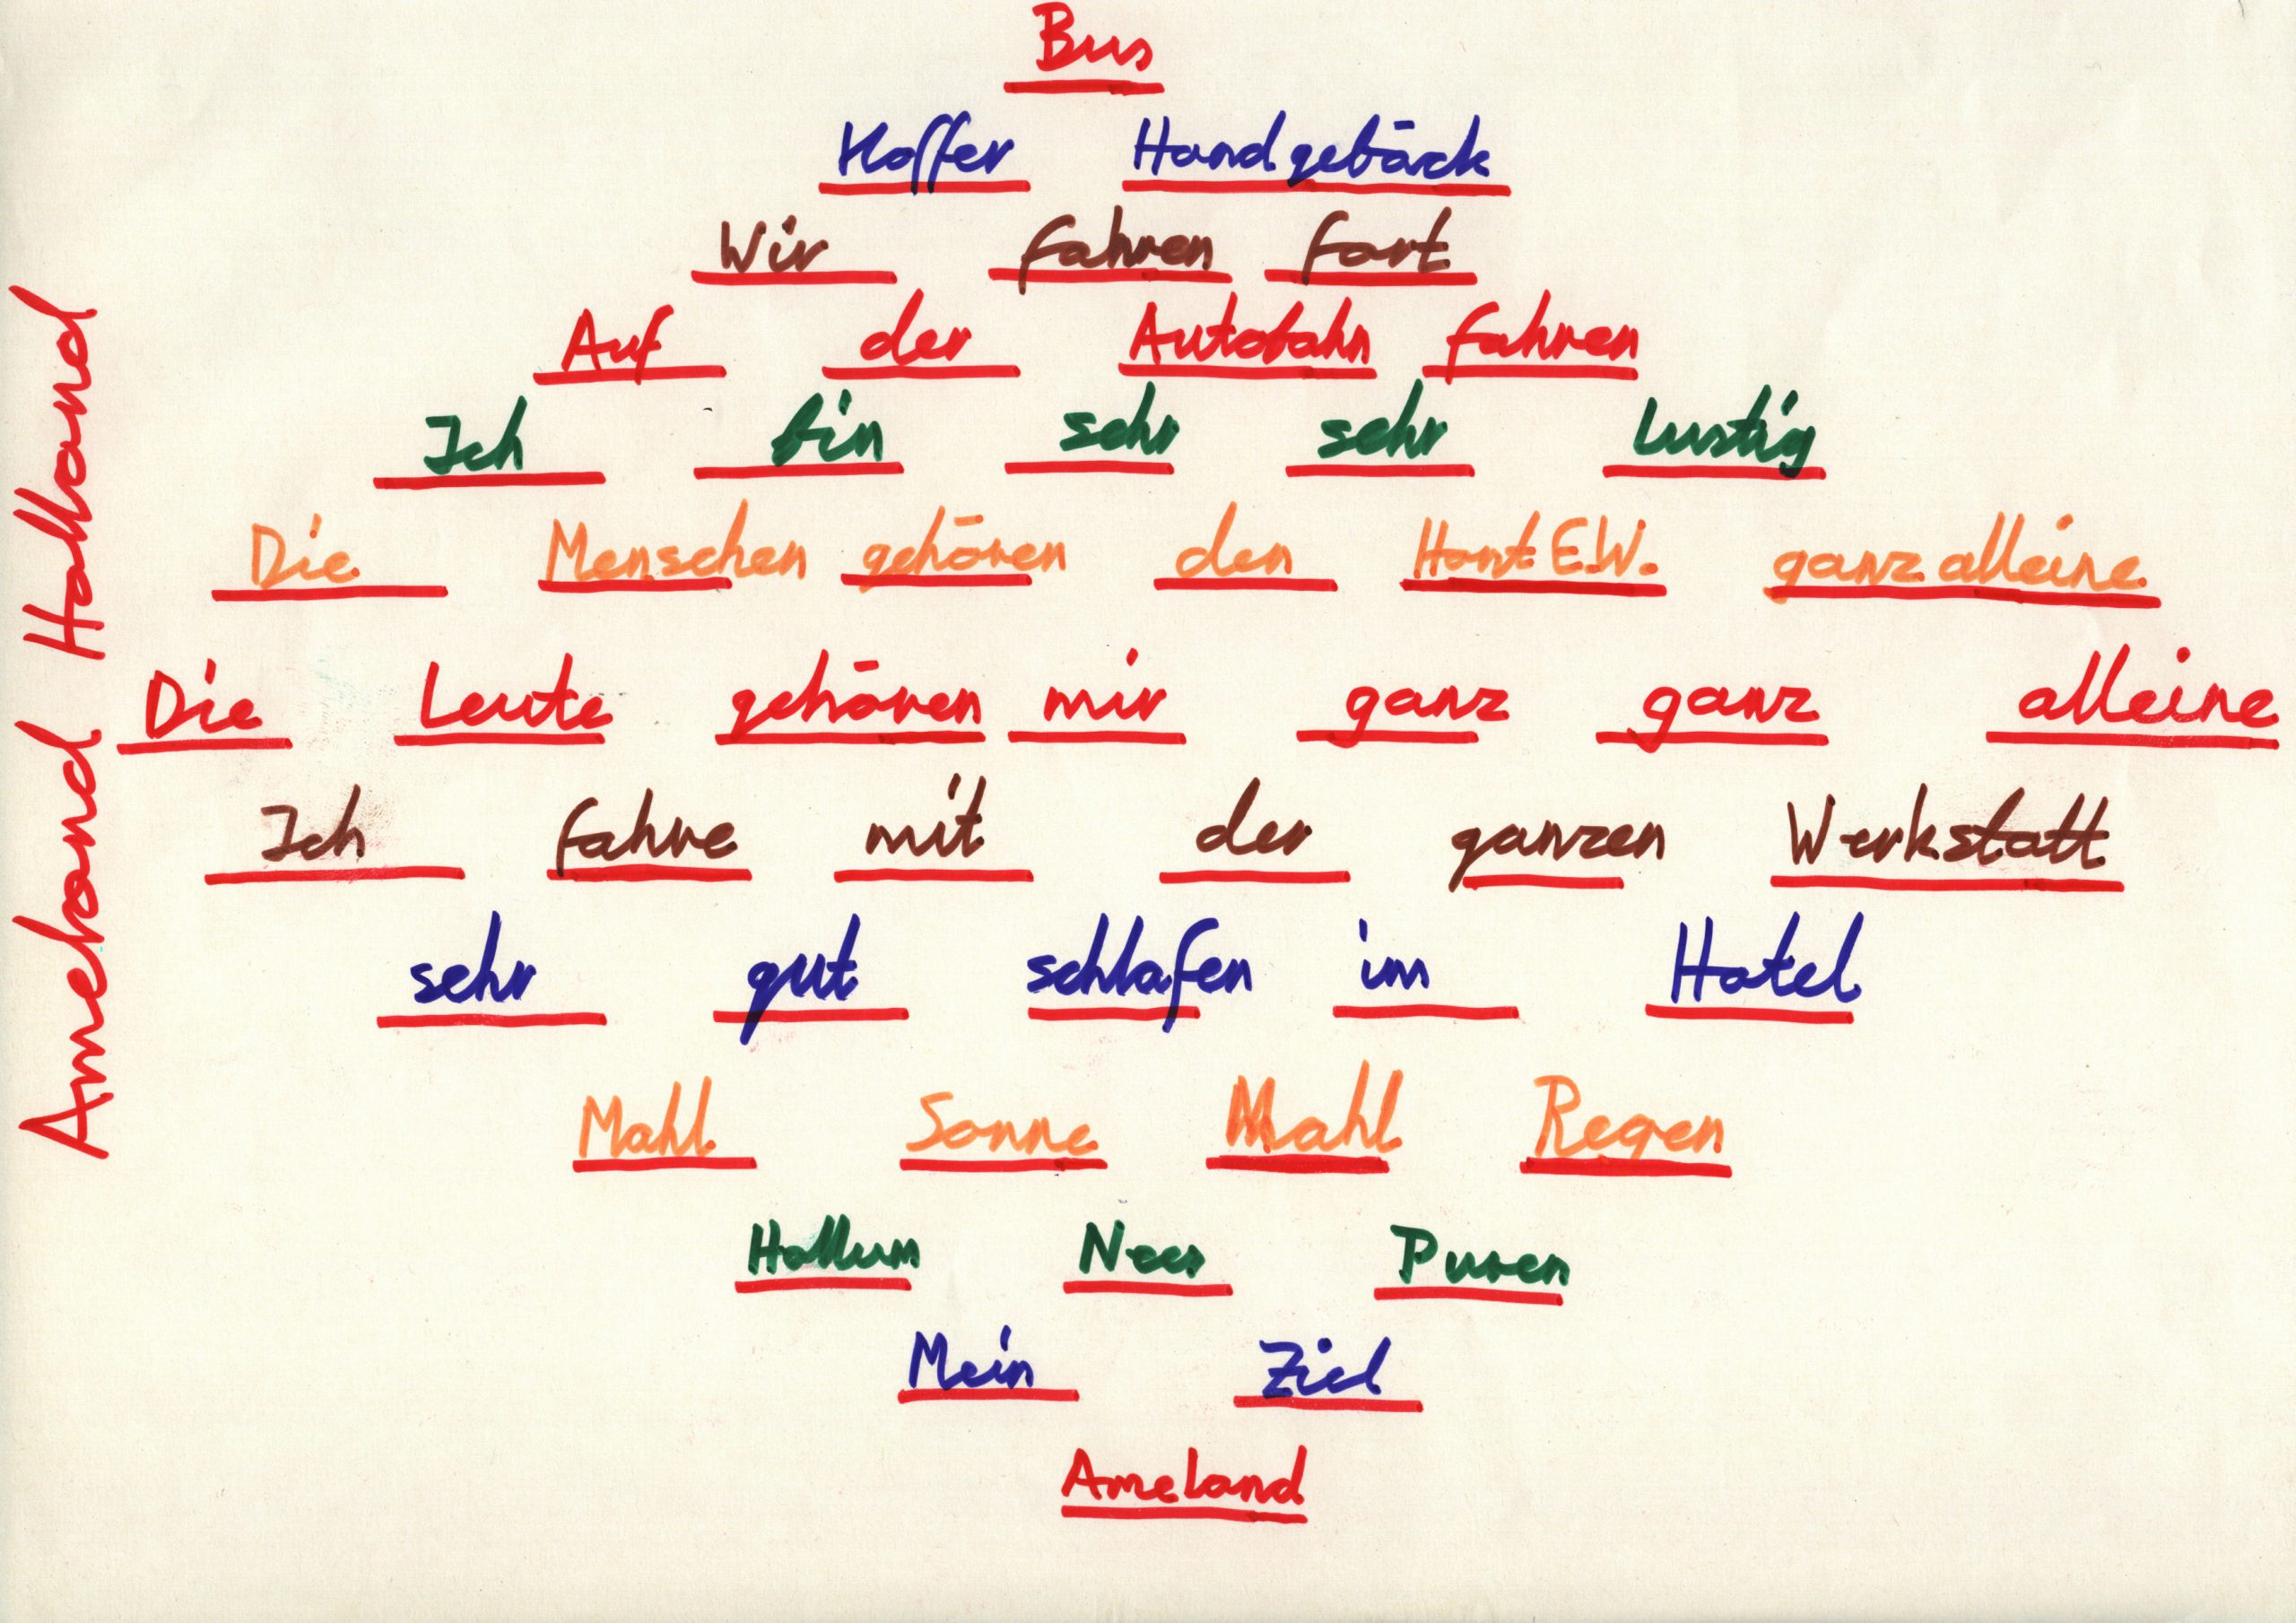 Bus
Koffer Handgebäck
Wir fahren fort
Auf der Autobahn fahren
Ich bin sehr sehr Lustig
Die Menschen gehören den Horst E.W. ganz alleine
Die Leute gehören mir ganz ganz alleine
Ich fahre mit der ganzen Werkstatt
sehr gut schlafen im Hotel
Mahl Sonne Mahl Regen
Hollum Nees Puren
Mein Ziel
Ameland
Ameland Holland